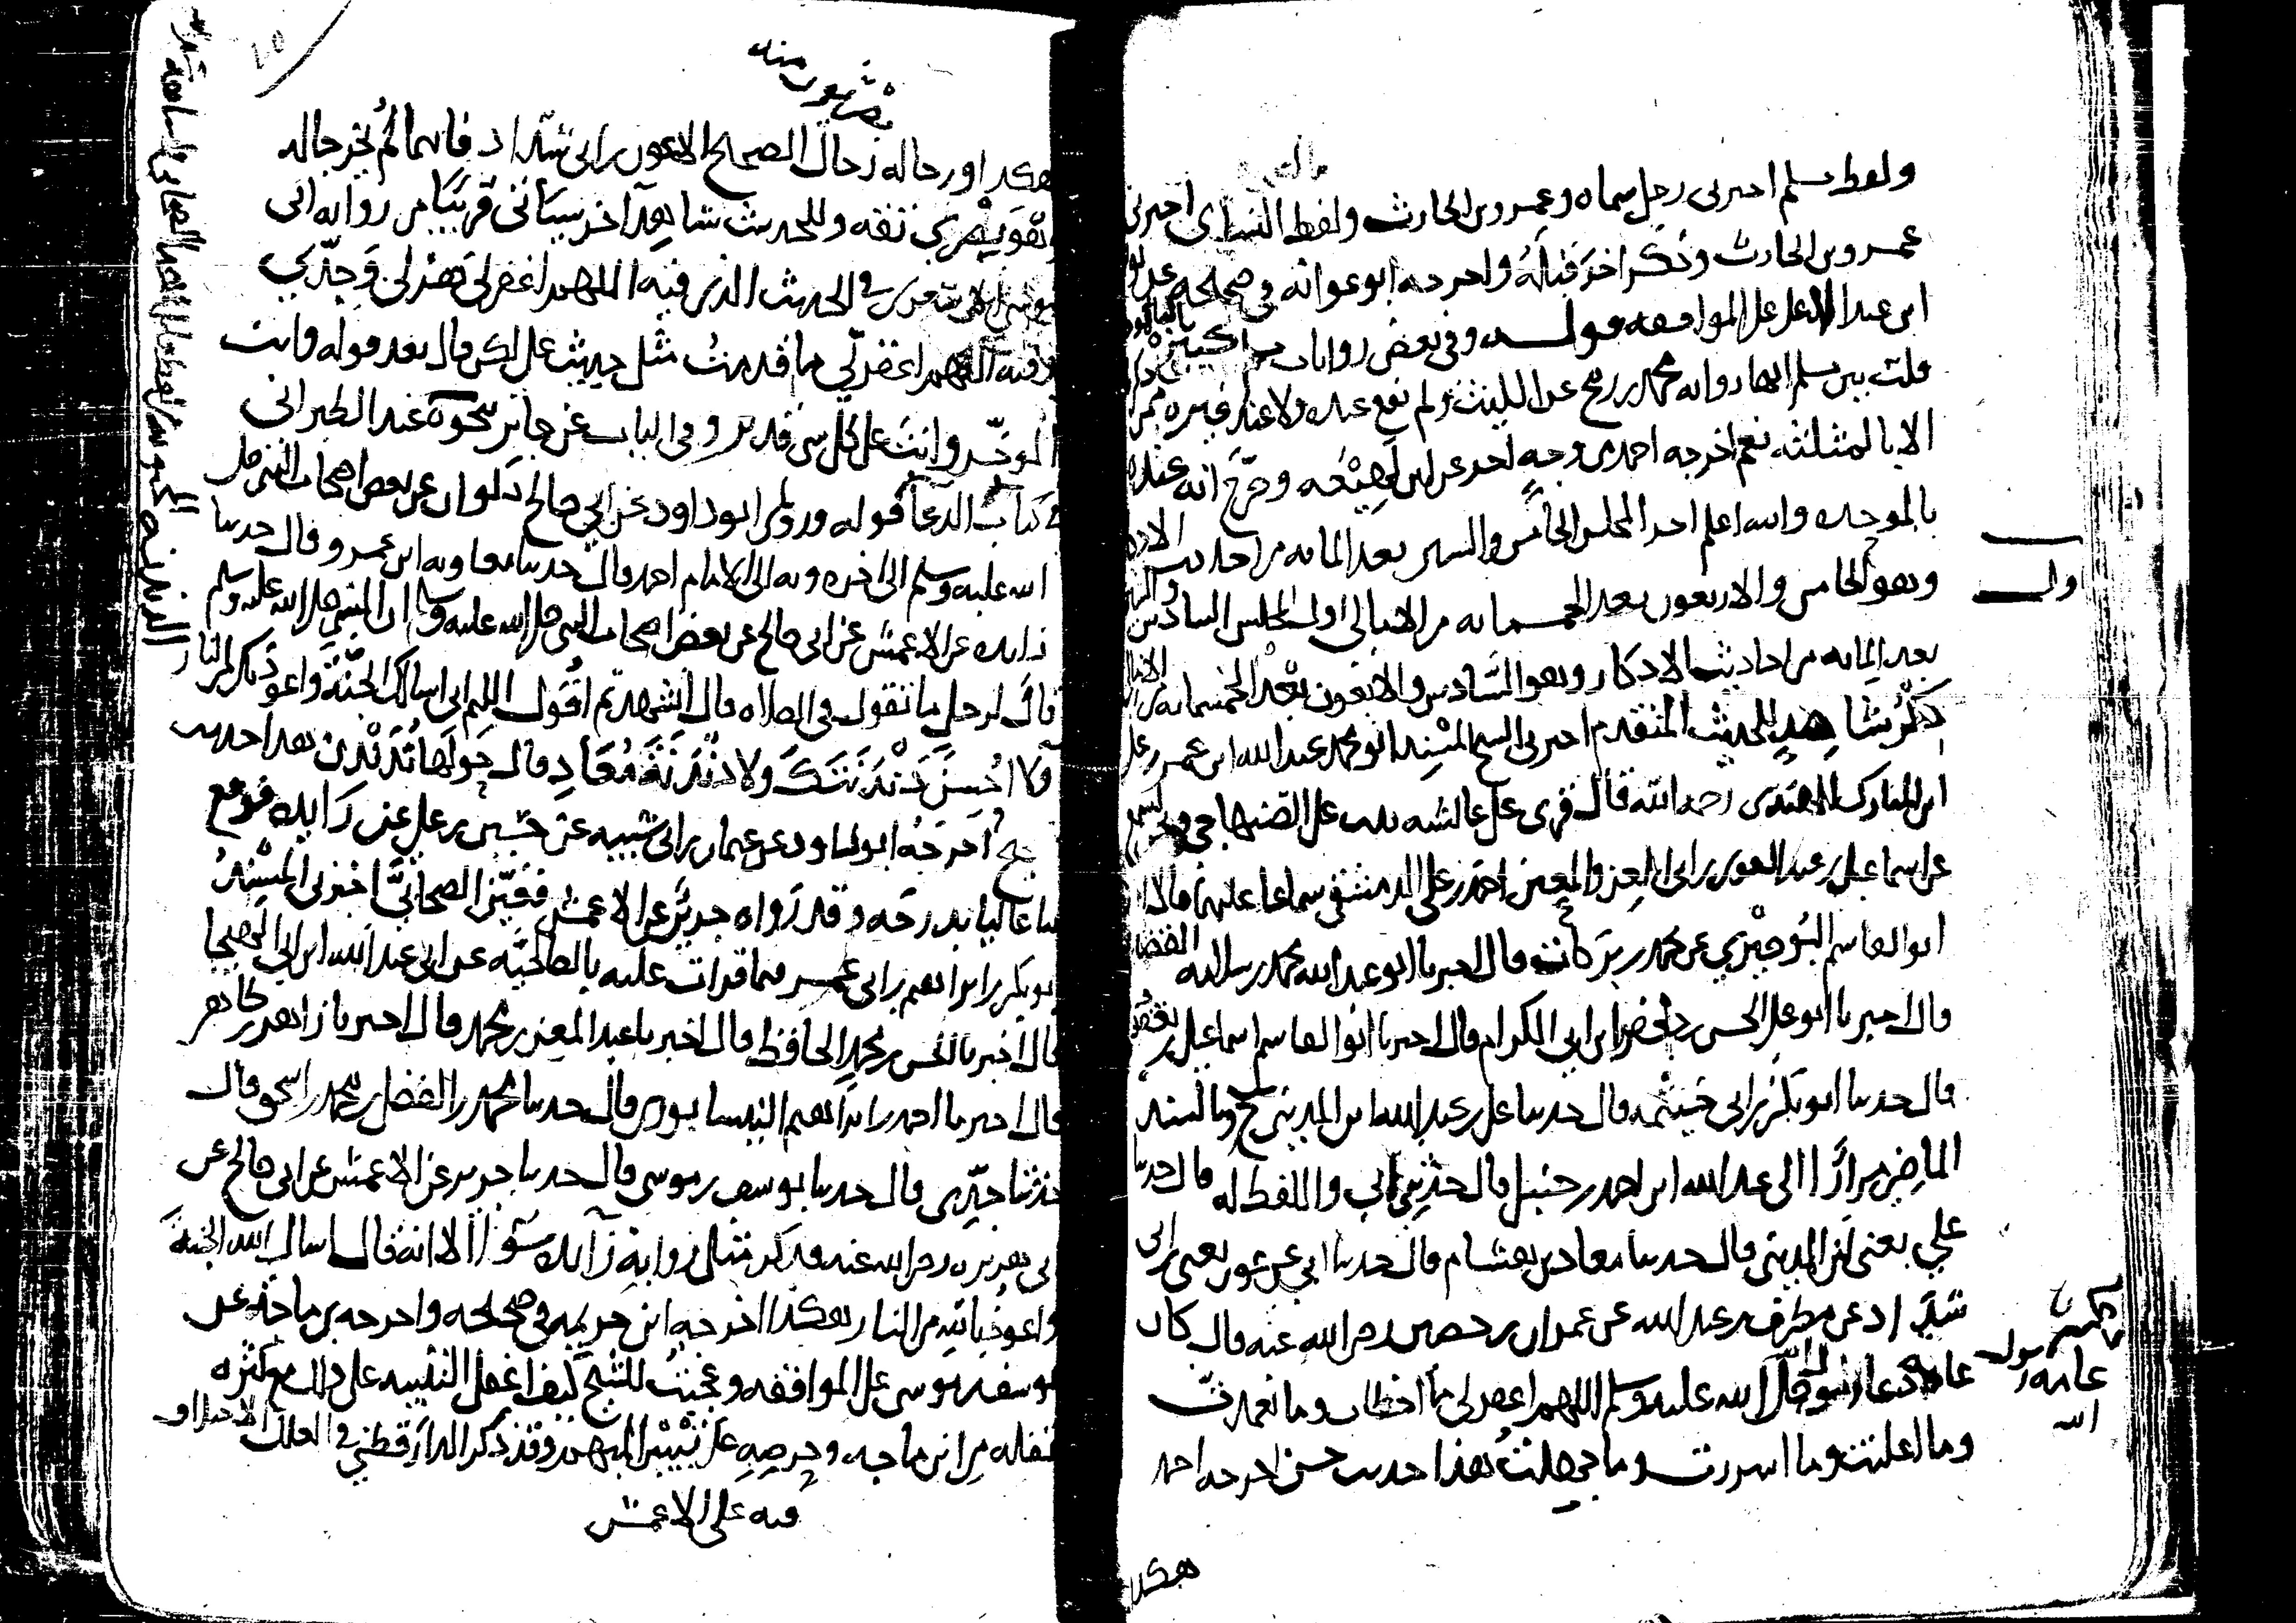 ولفظ مسلم اخبرني رجل سماه وعمرو بن الحارث ولفظ النسائي اخبرني
عمرو بن الحارث وذكر اخر قبله واخرجه ابو عوانه في صحيحه عن يونس
ابن عبد الاعلى على الموافقه قوله وفي بعض روايات مسلم كبيرا
قلت بين مسلم انها روايه محمد بن رمح عن الليث ولم تقع عنده ولا عند غيره
الا بالمثلثه نعم اخرجه احمد من وجه اخر عن ابن لهيعه وصرح انه عنده
بالموحده والله اعلم اخر المجلس الخامس بعد المايه من احاديث الاذكار
وهو الخامس والاربعون بعد الخمسمايه من الامالي اول المجلس السادس
بعد المايه من احاديث الاذكار وهو السادس والاربعون بعد الخمسمايه من الامالي
ذكر شاهد للحديث المتقدم اخبرني الشيخ المسند ابو محمد عبد الله ابن عمر بن علي
ابن المبارك الهندي رحمه الله قال قرئ على عائشه بنت علي الصنهاجي
عن اسماعيل بن عبد القوي بن ابي العز والمعين احمد بن علي الدمشقي سماعا عليهما قالا
ابو القاسم البوصيري عن محمد بن بركات قال اخبرنا ابو عبد الله محمد بن سلامه
قال اخبرنا ابو علي الحسن بن خضر ابن ابي الكرام قال اخبرنا ابو القاسم اسماعيل بن يعقوب
قال حدثنا ابو بكر بن ابي خيثمه قال حدثنا علي بن عبد الله ابن المديني ح وبالسند
الماضي مرارا الى عبد الله ابن احمد بن حنبل قال حدثني ابي واللفظ له قال حدثنا
علي يعني ابن المديني قال حدثنا معاذ بن هشام قال حدثنا ابي عن عون يعني ابن ابي
شداد عن مطرف بن عبد الله عن عمران بن حصين رضي الله عنه قال كان
عامه دعا رسول الله صلى الله عليه وسلم اللهم اغفر لي ما اخطات وما تعمدت
وما اعلنت وما اسررت وما جهلت هذا حديث حسن اخرجه احمد
هكذا
هكذا ورجاله رجال الصحيح الا عون بن ابي شداد فانهما لم يخرجا له
وهو بصري ثقه وللحديث شاهد اخر سياتي قريبا من روايه ابي
موسى الاشعري في الحديث الذي فيه اللهم اغفر لي هزلي وجدي
وفيه اللهم اغفر لي ما قدمت مثل حديث علي لكن قال بعد قوله وانت
الموخر وانت على كل شي قدير وفي الباب عن جابر نحوه عند الطبراني
في كتاب الدعا قوله وروى ابو داود عن ابي صالح ذكوان عن بعض اصحاب النبي صلى
الله عليه وسلم الى اخره وبه الى الامام احمد قال حدثنا معاويه ابن عمرو قال حدثنا
زايده عن الاعمش عن ابي صالح عن بعض اصحاب النبي صلى الله عليه وسلم ان النبي صلى الله عليه وسلم
قال لرجل ما تقول في الصلاه قال اتشهد ثم اقول اللهم اني اسالك الجنة واعوذ بك من النار
اما اني لا احسن دندنتك ولا دندنة معاذ قال حولها ندندن هذا حديث
صحيح اخرجه ابو داود عن عثمان بن ابي شيبه عن حسين بن علي عن زايده فوقع
لنا عاليا بدرجه وقد رواه جرير عن الاعمش فعين الصحابي اخبرني المسند
ابو بكر بن ابراهيم بن ابي عمر فيما قرات عليه بالصالحيه عن ابي عبد الله ابن ابي الهيجا
قال اخبرنا الحسن بن محمد الحافظ قال اخبرنا عبد المعز بن محمد قال اخبرنا زاهر بن طاهر
قال اخبرنا احمد بن ابراهيم النيسابوري قال حدثنا محمد بن الفضل بن محمد بن اسحق قال
حدثنا جدي قال حدثنا يوسف بن موسى قال حدثنا جرير عن الاعمش عن ابي صالح عن
ابي هريره رضي الله عنه فذكر مثل روايه زايده سوا الا انه قال اسال الله الجنه
واعوذ بالله من النار هكذا اخرجه ابن خزيمه في صحيحه واخرجه ابن ماجه عن
يوسف بن موسى على الموافقه وعجبت للشيخ كيف اغفل التنبيه على ذلك مع كثره
نقله من ابن ماجه وحرصه على تبيين المبهم وقد ذكر الدارقطني في العلل الاختلاف
فيه على الاعمش